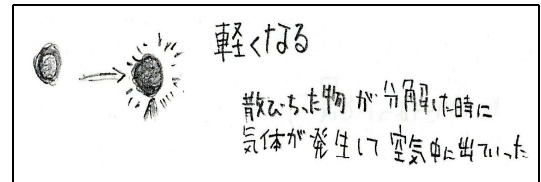 軽くなる
散びちった物が分解した時に
気体が発生して空気中に出ていった